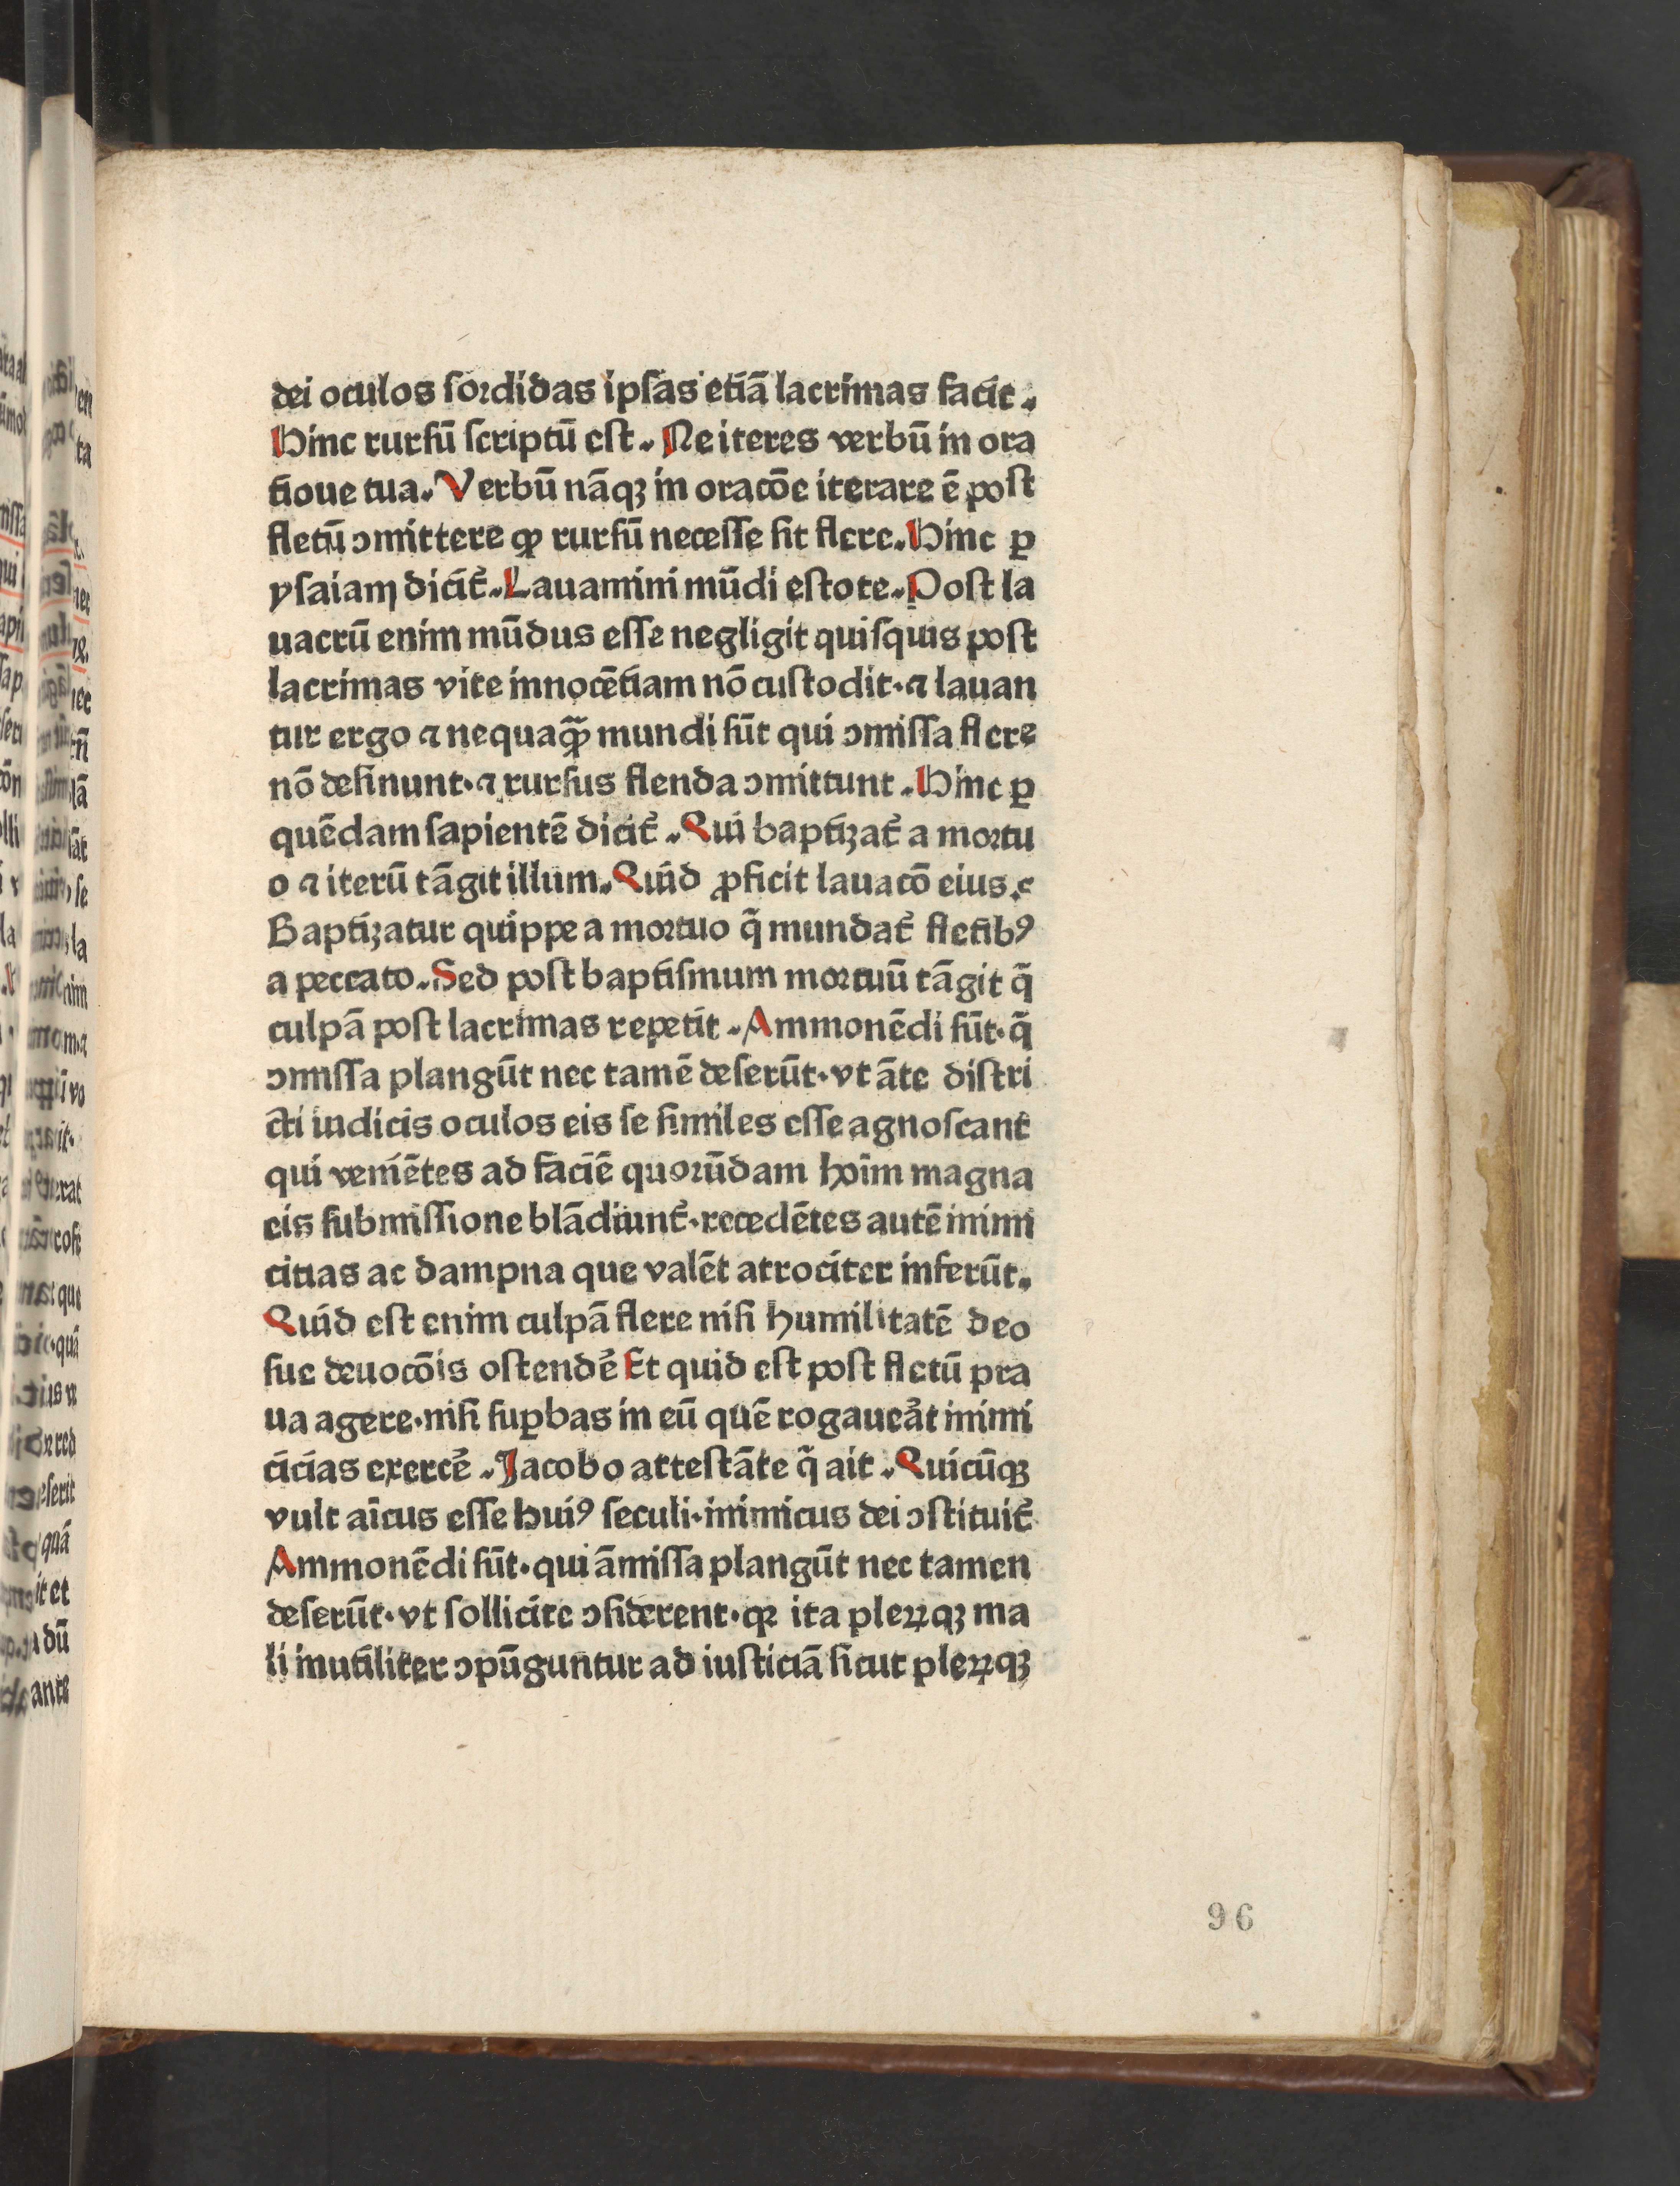 dei oculos ſoꝛdidas ipſas etiā lacrimas facit.
Hinc rurſū ſcriptū eſt. Ne iteres verbū in ora
tioue tua. Verbū nāqꝫ in oracōe iterare ē poſt
fletū ↄmittere ꝙ rurſū neceſſe ſit flere. Hinc ꝑ
yſaiam dicit̄. Lauamini mūdi eſtote. Poſt la
uacrū enim mūdus eſſe negligit quiſquis poſt
lacrimas vite innocētiam nō cuſtodit· ⁊ lauan
tur ergo ⁊ nequaꝙ̄ mundi ſūt qui ↄmiſſa flere
nō deſinunt· ⁊ rurſus flenda ↄmittunt. Hinc ꝑ
quēdam ſapientē dicit̄. Qui baptiꝫat̄ a moꝛtu
o ⁊ iterū tāgit illum. Quid ꝓficit lauacō eius.
Baptiꝫatur quippe a moꝛtuo q̄ mundat̄ fletibꝰ
a peccato. Sed poſt baptiſmum moꝛtuū tāgit q̄
culpā poſt lacrimas repetit. Ammonēdi ſūt· q̄
ↄmiſſa plangūt nec tamē deſerūt· vt āte diſtri
cti iudicis oculos eis ſe ſimiles eſſe agnoſcant
qui veniētes ad faciē quoꝛūdam hoīm magna
eis ſubmiſſione blādiunt̄· recedētes autē inimi
citias ac dampna que valēt atrociter inferūt.
Quid eſt enim culpā flere niſi humilitatē deo
ſue deuocōis oſtendē Et quid eſt poſt fletū pra
ua agere· niſi ſuꝑbas in eū quē rogauer̄at inimi
cicias exercē. Jacobo atteſtāte q̄ ait. Quicūqꝫ
vult aīcus eſſe huiꝰ ſeculi· inimicus dei ↄſtituit̄
Ammonēdi ſūt· qui āmiſſa plangūt nec tamen
deſerūt· vt ſollicite ↄſiderent· qꝛ ita pleꝝqꝫ ma
li inutiliter ↄpūguntur ad iuſticiā ſicut pleꝝqꝫ
96